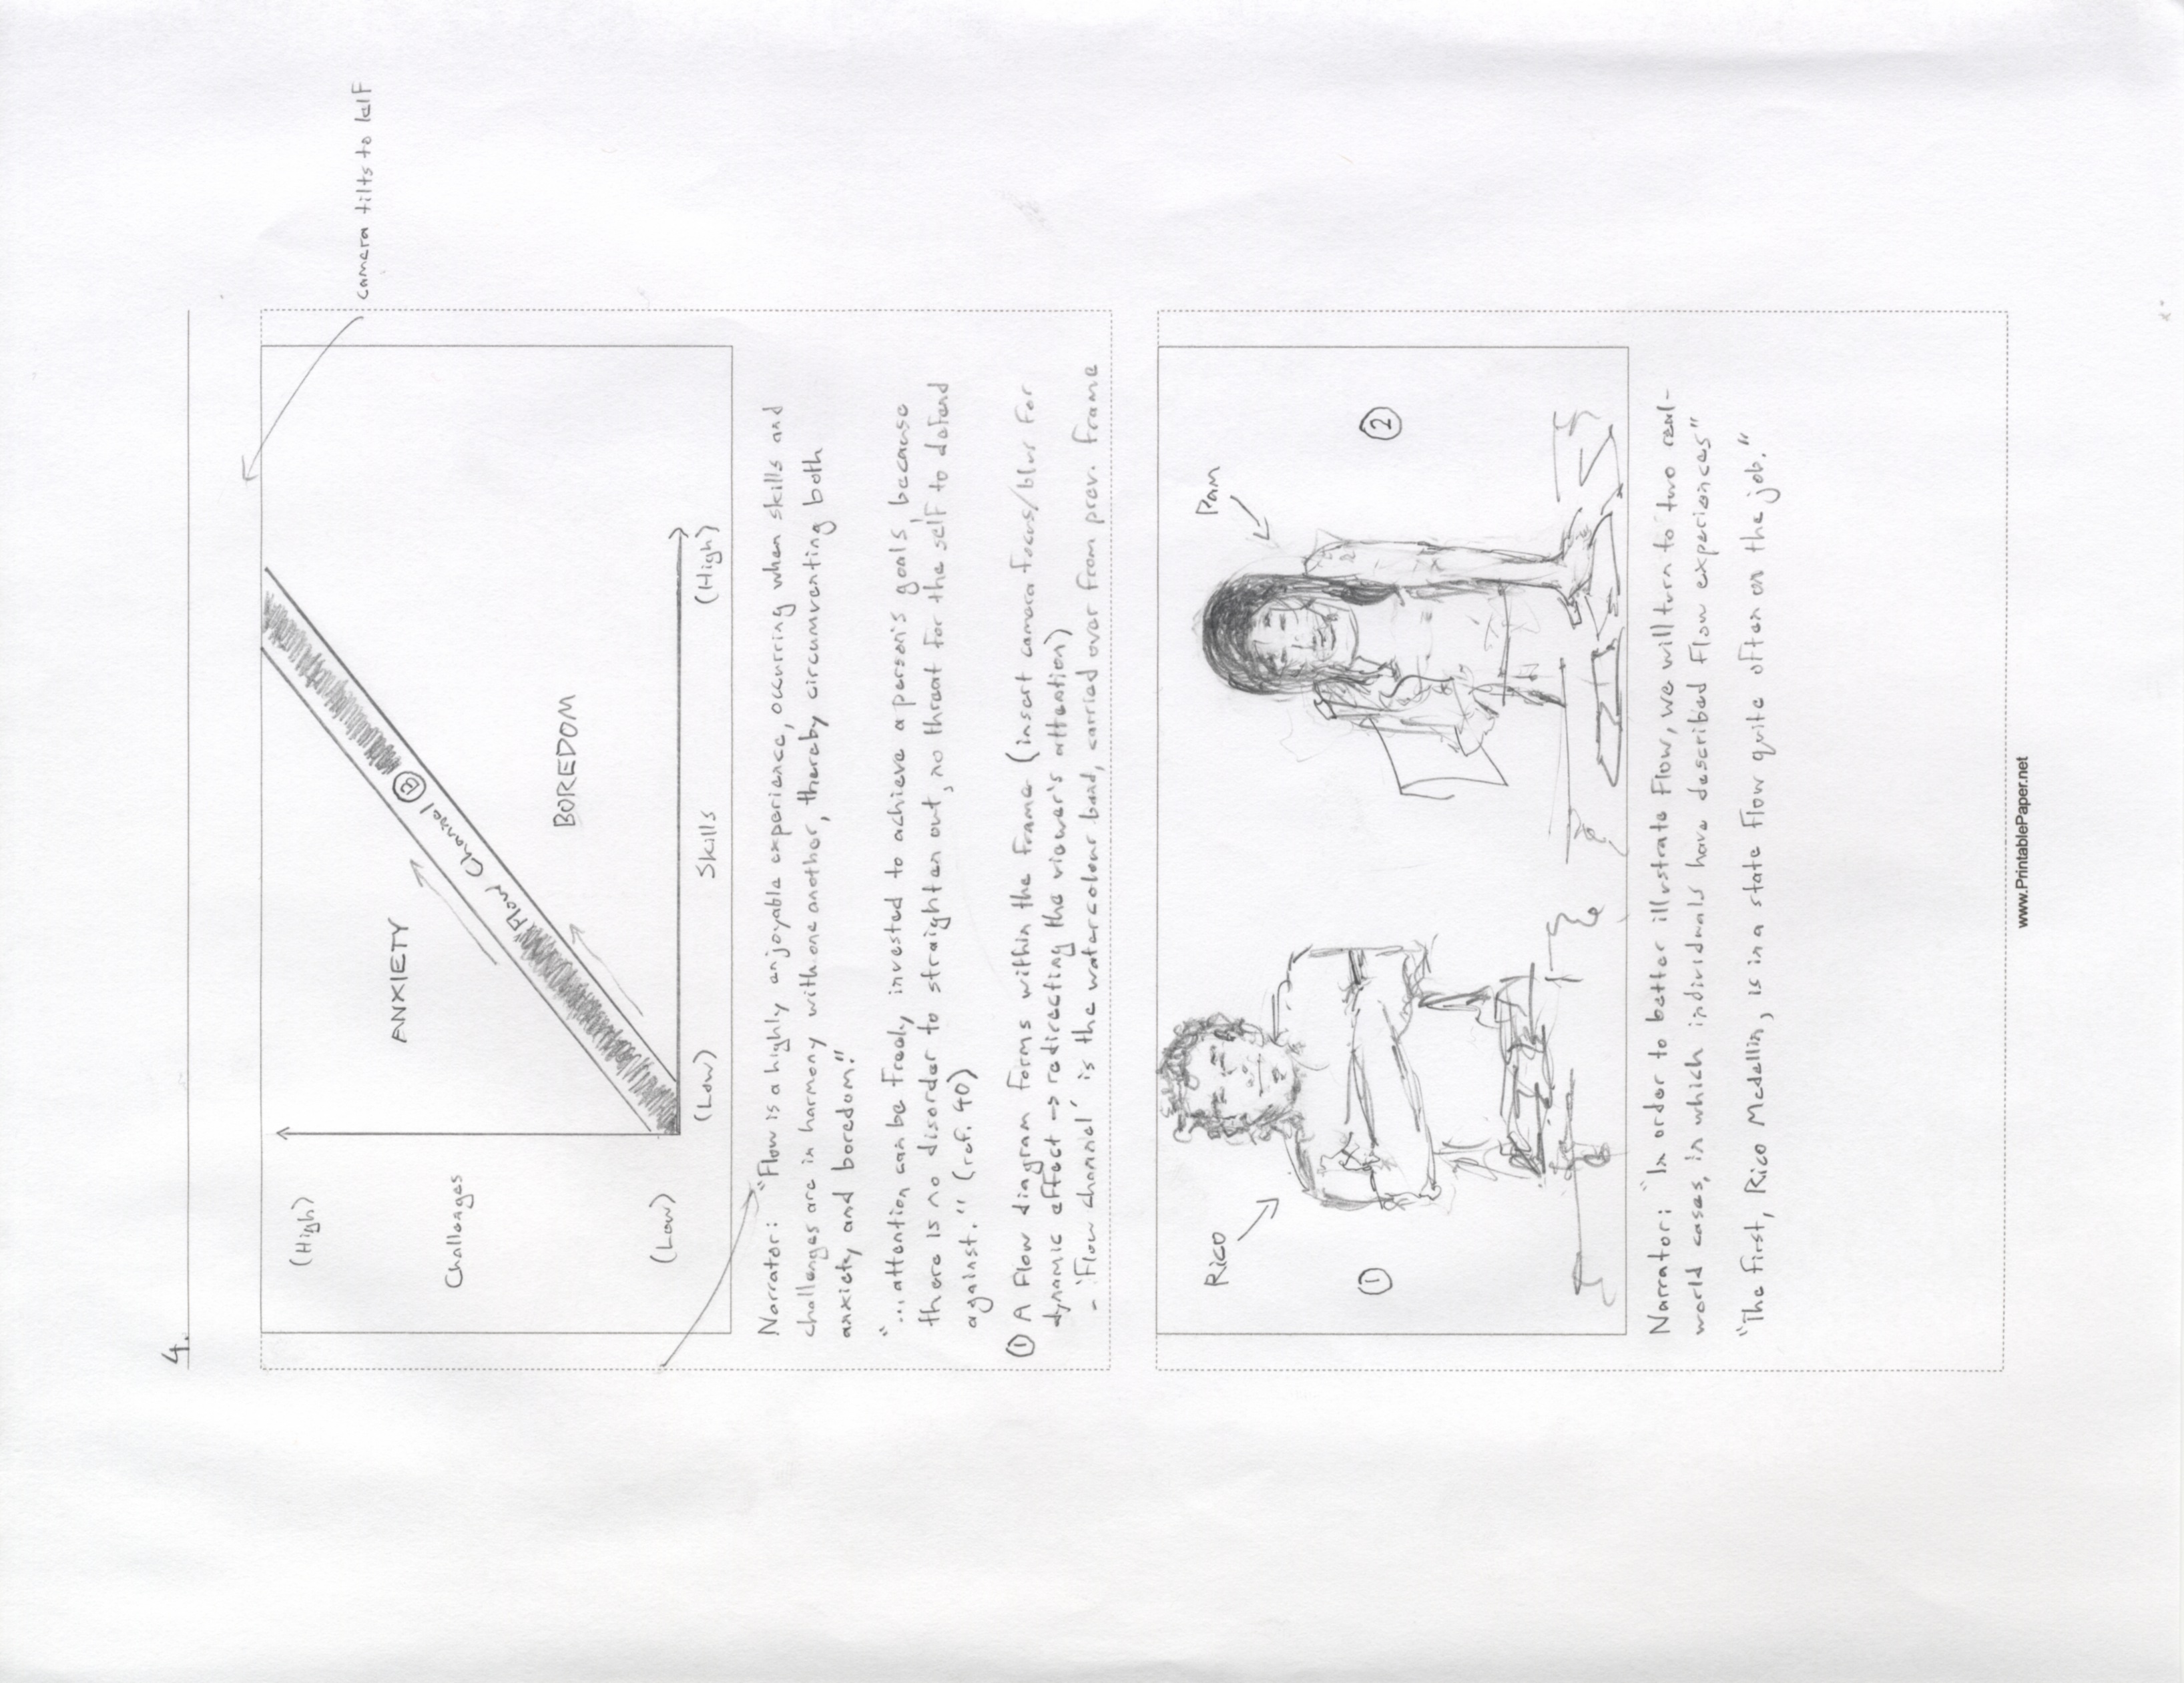 4.
camera tilts to left
(High)
Challenges
(Low)
ANXIETY
Flow Channel
BOREDOM
(Low)
Skills
(High)
Narrator: "Flow is a highly enjoyable experience, occurring when skills and
challenges are in harmony with one another, thereby circumventing both
anxiety and boredom."
"...attention can be freely invested to achieve a person's goals, because
there is no disorder to straighten out, no threat for the self to defend
against." (ref. 40)
① A Flow diagram forms within the frame (insert camera focus/blur for
dynamic effect → redirecting the viewer's attention)
- 'Flow channel' is the watercolour band, carried over from prev. frame
Rico
①
Pam
②
Narrator: "In order to better illustrate Flow, we will turn to two real-
world cases, in which individuals have described Flow experiences"
"The first, Rico Medellin, is in a state flow quite often on the job."
www.PrintablePaper.net